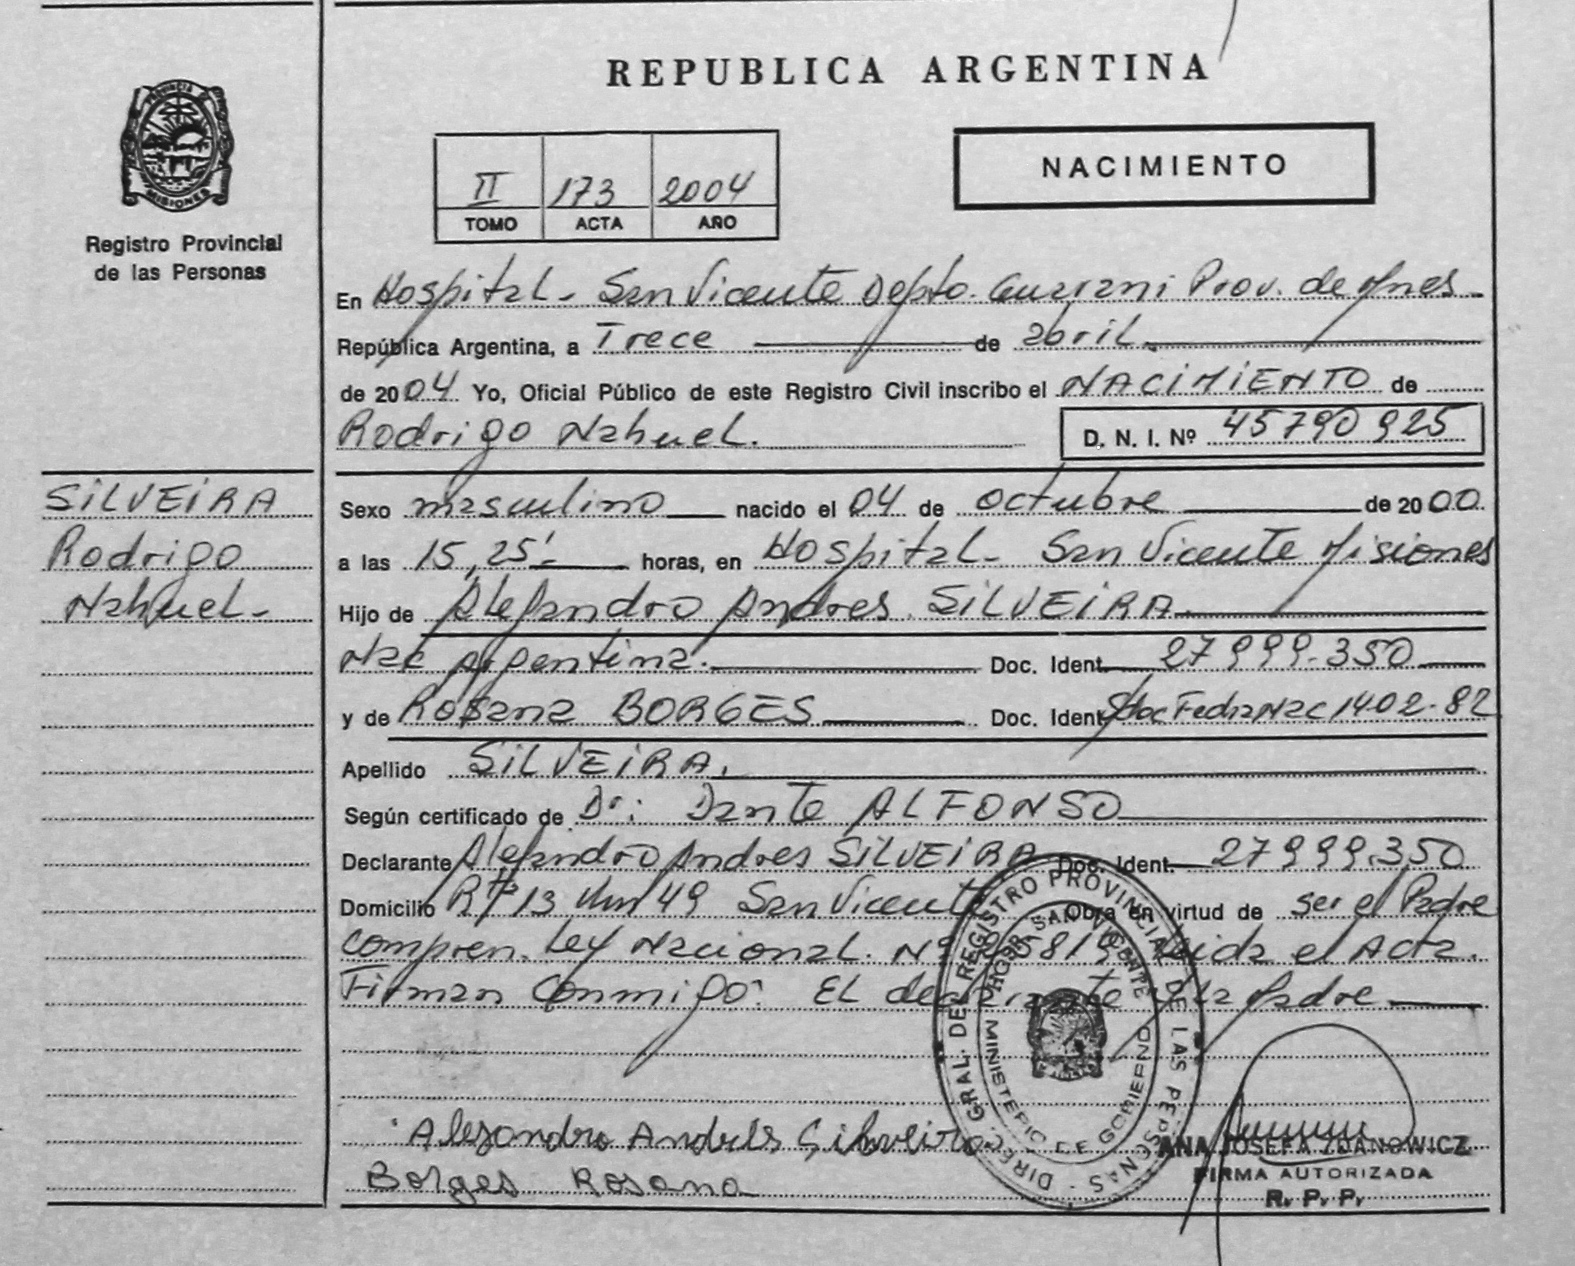 REPUBLICA ARGENTINA
PROVINCIA DE
MISIONES
Registro Provincial
de las Personas
II 173 2004
TOMO ACTA AÑO
NACIMIENTO
En Hospital - San Vicente Depto. Guarani Prov. de Mnes
República Argentina, a Trece de abril.
de 2004 Yo, Oficial Público de este Registro Civil inscribo el NACIMIENTO de
Rodrigo Nahuel. D. N. I. Nº 45790925
SILVEIRA
Rodrigo
Nahuel-
Sexo masculino nacido el 04 de octubre de 2000.
a las 15,25'- horas, en Hospital - San Vicente Misiones
Hijo de Alejandro Andres SILVEIRA
Nac Argentina. Doc. Ident. 27999.350
y de Rosana BORGES Doc. Ident. S/doc Fecha Nac 14-02-82
Apellido SILVEIRA.
Según certificado de Dr: Dante ALFONSO
Declarante Alejandro Andres SILVEIRA Doc. Ident. 27999.350
Domicilio Rta 13 Km 49 San Vicente Obra en virtud de ser el Padre
compren. Ley Nacional. Nº 25819 Leida el Acta.
Firman Conmigo: El declarante y la Padre
DIREC. GRAL. DEL REGISTRO PROVINCIAL DE LAS PERSONAS -
SAN VICENTE
MINISTERIO DE GOBIERNO
Alejandro Andrés Silveira
Borges Rosana
ANA JOSEFA ZDANOWICZ
FIRMA AUTORIZADA
R. P. P.